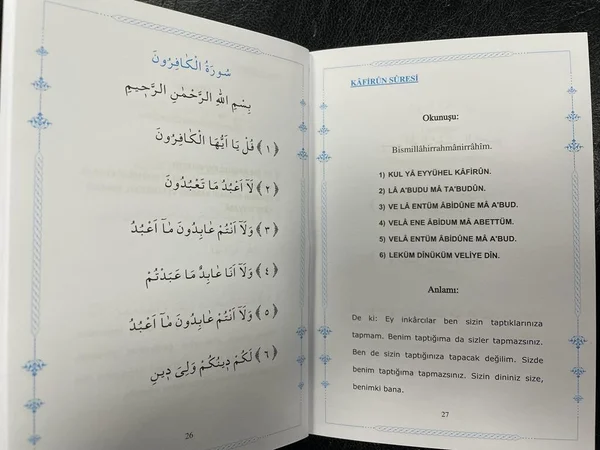 سُورَةُ الْكَافِرُونَ
بِسْمِ اللهِ الرَّحْمٰنِ الرَّحِيمِ
﴿١﴾ قُلْ يَا اَيُّهَا الْكَافِرُونَ
﴿٢﴾ لَآ اَعْبُدُ مَا تَعْبُدُونَ
﴿٣﴾ وَلَآ اَنْتُمْ عَابِدُونَ مَٓا اَعْبُدُ
﴿٤﴾ وَلَآ اَنَا عَابِدٌ مَا عَبَدْتُمْ
﴿٥﴾ وَلَآ اَنْتُمْ عَابِدُونَ مَٓا اَعْبُدُ
﴿٦﴾ لَكُمْ دِينُكُمْ وَلِىَ دِينِ
26
KÂFİRÛN SÛRESİ
Okunuşu:
Bismillâhirrahmânirrâhîm.
1) KUL YÂ EYYÜHEL KÂFİRÛN.
2) LÂ A'BUDU MÂ TA'BUDÛN.
3) VE LÂ ENTÜM ÂBİDÛNE MÂ A'BUD.
4) VELÂ ENE ÂBİDUM MÂ ABETTÜM.
5) VELÂ ENTÜM ÂBİDÛNE MÂ A'BUD.
6) LEKÜM DÎNÜKÜM VELİYE DÎN.
Anlamı:
De ki: Ey inkârcılar ben sizin taptıklarınıza
tapmam. Benim taptığıma da sizler tapmazsınız.
Ben de sizin taptığınıza tapacak değilim. Sizde
benim taptığıma tapmazsınız. Sizin dininiz size,
benimki bana.
27